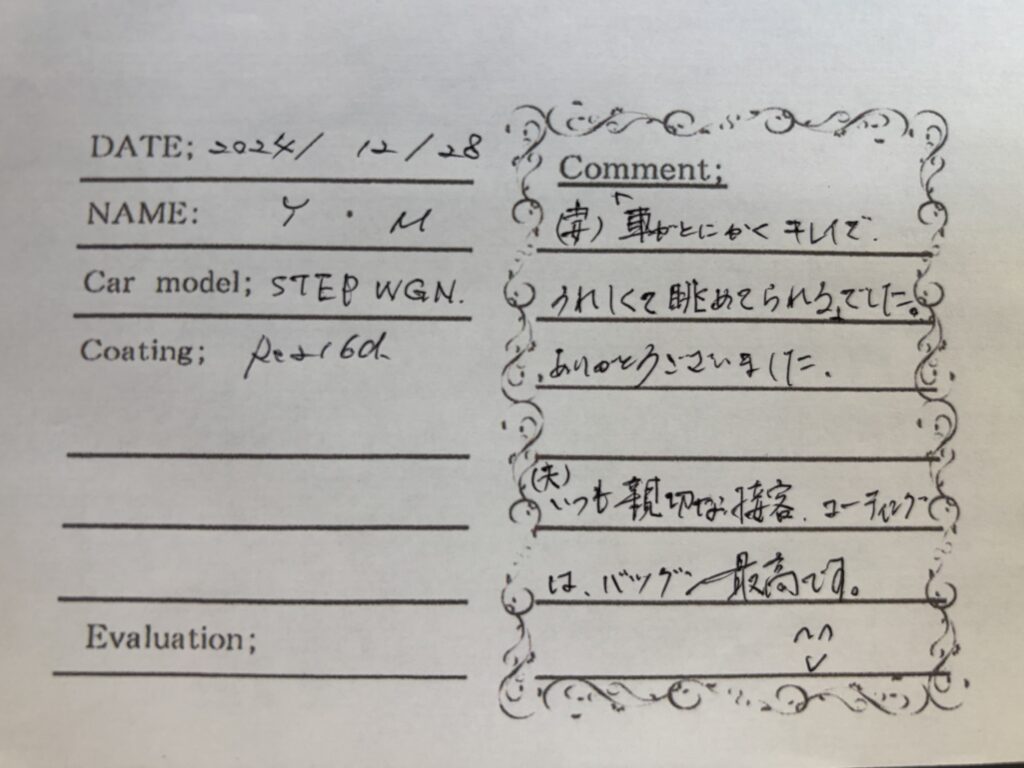 DATE; 2024/ 12/28
NAME: Y・M
Car model; STEP WGN.
Coating;
Evaluation;
Comment;
(妻)「車がとにかくキレイで、
うれしくて眺めてられる」でした。
ありがとうございました。
(夫)いつも親切な接客、コーティング
は、バツグン 最高です。